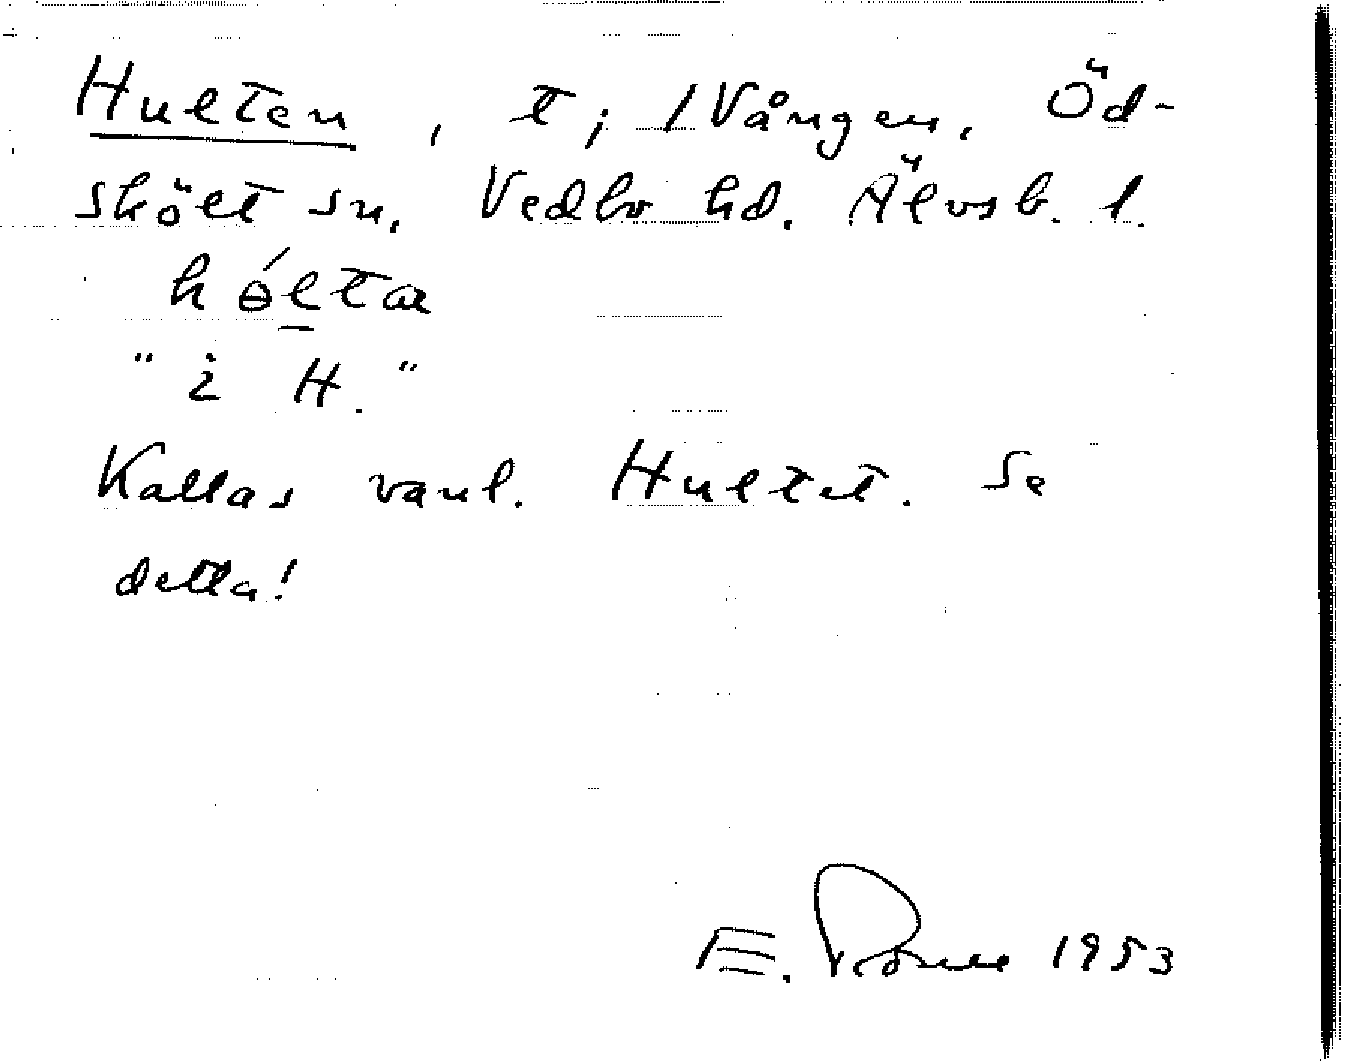 Hulten, t; 1 Vången, Öd-
skölt sn, Vedbo hd. Älvsb. l.
hɵ́lta
"i H."
Kallas vanl. Hultet. Se
detta!
E. 1953